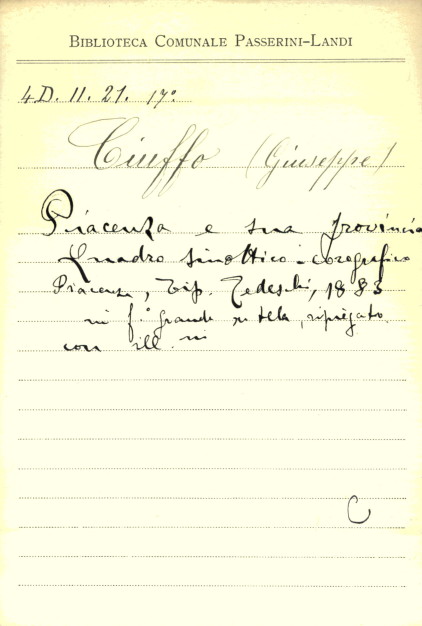 BIBLIOTECA COMUNALE PASSERINI-LANDI
4D. II. 21. 17º
Ciuffo (Giuseppe)
Piacenza e sua provincia
Quadro sinottico-corografico
Piacenza, Tip. Tedeschi, 1883
in f.º grande su tela, ripiegato
con ill.ni
C